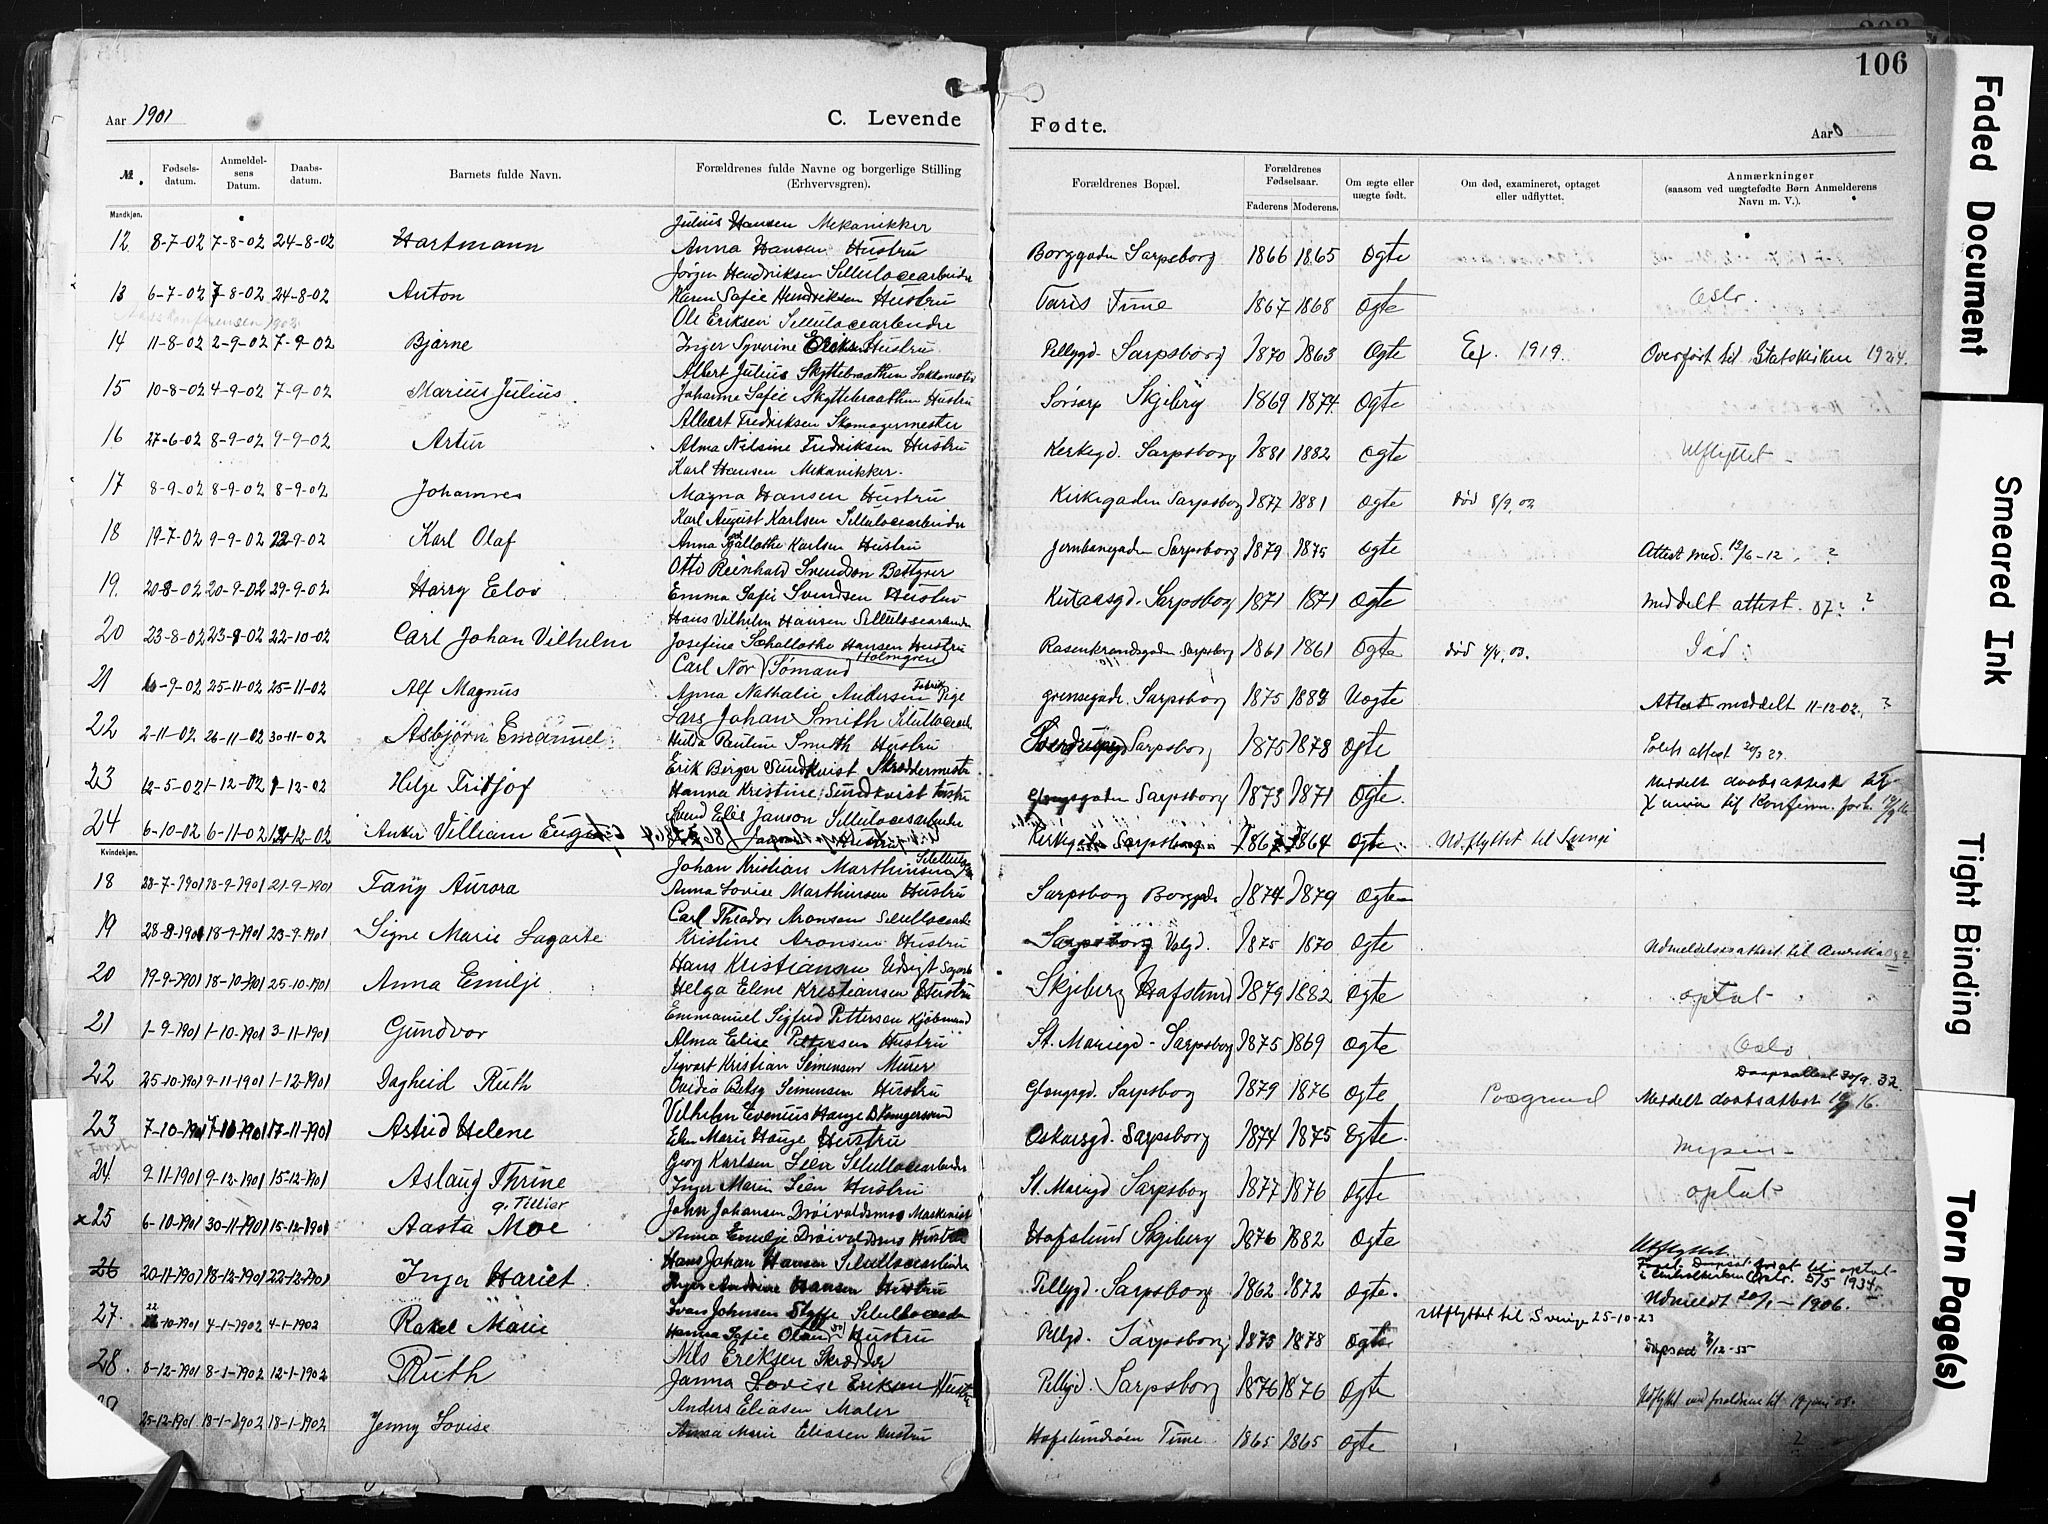 106
Aar 1901
C. Levende Fødte.
Aar 0
№. Fødselsdatum. Anmeldelsens Datum. Daabsdatum. Barnets fulde Navn. Forældrenes fulde Navne og borgerlige Stilling (Erhvervsgren). Forældrenes Bopæl. Forældrenes Fødselsaar. Faderens Moderens. Om ægte eller uægte født. Om død, examineret, optaget eller udflyttet. Anmærkninger (saasom ved uægtefødte Børn Anmelderens Navn m. V.).
Mandkjøn.
Julius Hansen Mekanikker
12 8-7-02 7-8-02 24-8-02 Hartmann Anna Hansen Hustru Borggaden Sarpsborg 1866 1865 Ogte
Jørgen Hendriksen Sellulocearbeider
13 6-7-02 7-8-02 24-8-02 Anton Karen Safie Hendriksen Hustru Taris Tune 1867 1868 Ogte Oslo.
Ole Eriksen Sellulocearbeidre
14 11-8-02 2-9-02 7-9-02 Bjarne Inger Syverine Eriksen Hustru Pellygd. Sarpsborg 1870 1863 Ogte Ex. 1919. Overført til Statskirken 1924.
Albert Julius Skyttebraathen
15 10-8-02 4-9-02 7-9-02 Marius Julius Johanne Safie Skyttebraathen Hustru Sørsarp Skjeberg 1869 1874 Ogte
Albert Fredriksen Skomagermester
16 27-6-02 8-9-02 9-9-02 Artur Alma Nilsine Fredriksen Hustru Kerkegd. Sarpsborg 1881 1882 Ogte Utflyttet
Karl Hansen Mekanikker.
17 8-9-02 8-9-02 8-9-02 Johannes Magna Hansen Hustru Kirkegaden Sarpsborg 1877 1881 Ogte død 8/9.02
Karl August Karlsen Sellulocearbeider
18 19-7-02 9-9-02 22-9-02 Karl Olaf Anna Karlsen Hustru Jernbanegaden Sarpsborg 1879 1875 Ogte Attest med. 12/6-12. ?
Otto Reinhald Svendsen Bestyrer
19. 20-8-02 20-9-02 29-9-02 Harry Elov Emma Safie Svendsen Hustru Sarpsborg 1871 1871 Ogte Meddelt attest. 07? ?
Hans Vilhelm Hansen Sellulocearbeider
20 23-8-02 23-8-02 22-10-02 Carl Johan Vilhelm Josefine Schallotke Hansen Hustru Rosenkrandsgaden Sarpsborg 1861 1861 Ogte død 4/4.03.
Carl Nor Holmgren Sømand
21 6-9-02 25-11-02 25-11-02 Alf Magnus Anna Nathalie Andersen Fabrik Pige Grensegade. Sarpsborg 1875 1883 Uogte Attest meddelt 11-12-02. ?
Lars Johan Smith Sellulocearb
22 2-11-02 26-11-02 30-11-02 Asbjørn Emanuel Hilda Pauline Smith Hustru Sverdrupsgd Sarpsborg 1875 1878 Ogte
Erik Birger Sundkvist Skreddermester
23 12-5-02 1-12-02 1-12-02 Helge Fritjof Hanna Kristine Sundkvist Hustru Glengsgaden Sarpsborg 1873 1871 Ogte Meddelt daabsattest
Svend Elis Janson Sellulocearbeidre
24 6-10-02 6-11-02 12-12-02 Anker Villiam Eugen Hustru Kirkegaden Sarpsborg 1867 1864 Ogte Udflyttet til Sverige
Kvindekjøn.
Johan Kristian Marthinsen
18 28-7-1901 18-9-1901 21-9-1901 Fany Aurora Anna Lovise Marthinsen Hustru Sarpsborg Borggade 1874 1879 Ogte
Carl Theodor Aronsen
19 28-8-1901 18-9-1901 23-9-1901 Signe Marie Lagarte Kristine Aronsen Hustru Sarpsborg Valgd. 1875 1870 Ogte Udmeldelsesattest til Amerika
Hans Kristiansen
20 19-9-1901 18-10-1901 25-10-1901 Anna Emilje Helga Elene Kristiansen Hustru Skjeberg Hafslund 1879 1882 Ogte optat
Emmanuel Sigfred Pettersen Kjøbmand
21 1-9-1901 1-10-1901 3-11-1901 Gundvor Alma Elise Pettersen Hustru St. Mariegd - Sarpsborg 1875 1869 Ogte Oslo
Sigvart Kristian Simensen Murer
Daapsattest 30/9. 32.
22 25-10-1901 9-11-1901 1-12-1901 Dagheid Ruth Ovidia Betsy Simensen Hustru Glengsgd. Sarpsborg 1879 1876 Ogte Porsgrund Meddelt daabsattest 16.
Vilhelm Evenius Hauge
23 7-10-1901 7-11-1901 17-11-1901 Astrid Helene Elen Marie Hauge Hustru Oskarsgd. Sarpsborg 1874 1875 Egte. Mysen
Georg Karlsen Lien Sellulocearbeider
24. 9-11-1901 9-12-1901 15-12-1901 Aslaug Thrine Inger Marie Lien Hustru St. Mariegd Sarpsborg 1877 1876 Ogte optat
g. Tillier John Johansen Drøivoldsmos Maskinist
x25 6-10-1901 30-11-1901 15-12-1901 Aasta Moe Anna Emilje Drøivoldsmos Hustru Hafslund Skjeberg 1876 1882 Ogte Utflyttet.
Hans Johan Hansen Sellulocearbeider
i Centralkirken Oslo. 5/5 1934
26 20-11-1901 18-12-1901 22-12-1901 Inga Hariet Inger Andrine Hansen Hustru Pellygd. Sarpsborg 1862 1872 Ogte. Udmeldt 20/1-1906.
Ivar Johnsen Styffe
Utflyttet til Sverige 25-10-23
27. 22-10-1901 4-1-1902 4-1-1902 Rakel Marie Hanna Safie Hustru Pellgd. Sarpsborg 1873 1878 Ogte
Nils Eriksen Skrædder
28. 8-12-1901 8-1-1902 12-1-1902 Ruth Janna Lovise Eriksen Hustru Pellygd. Sarpsborg 1876 1876 Ogte
Anders Eliasen Maler
29 25-12-1901 18-1-1902 18-1-1902 Jenny Lovise Anna Marie Eliasen Hustru Hafslundsøen Tune 1865 1865 Ogte ?
Faded Document
Smeared Ink
Tight Binding
Torn Page(s)